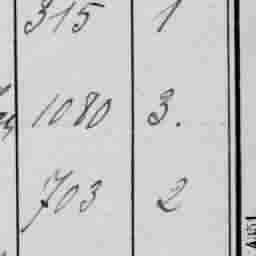 315 1
1080 3.
703 2